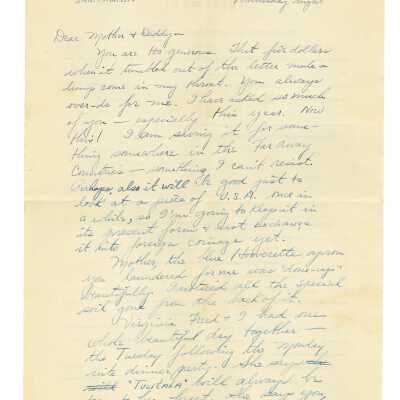 Wednesday night
Dear Mother & Daddy -
You are too generous. That five dollars
when it tumbled out of the letter made a
lump come in my throat. You always
over-do for me. I have asked so much
of you - especially this year. Now
this! I am saving it for some-
thing somewhere in the Far Away
Countries - something I can't resist.
Perhaps, also it will be good just to
look at a piece of U.S.A. once in
a while, so I'm going to keep it in
its present form & not exchange
it into foreign coinage yet.
Mother, the blue Hooverette apron
you laundered for me was "done-up"
beautifully. I noticed all the special
soil gone from the back of it.
Virginia, Fred & I had one
whole beautiful day together -
the Tuesday following the Monday
nite dinner party. She says
"Toylnen" will always be
to her heart. She says you,